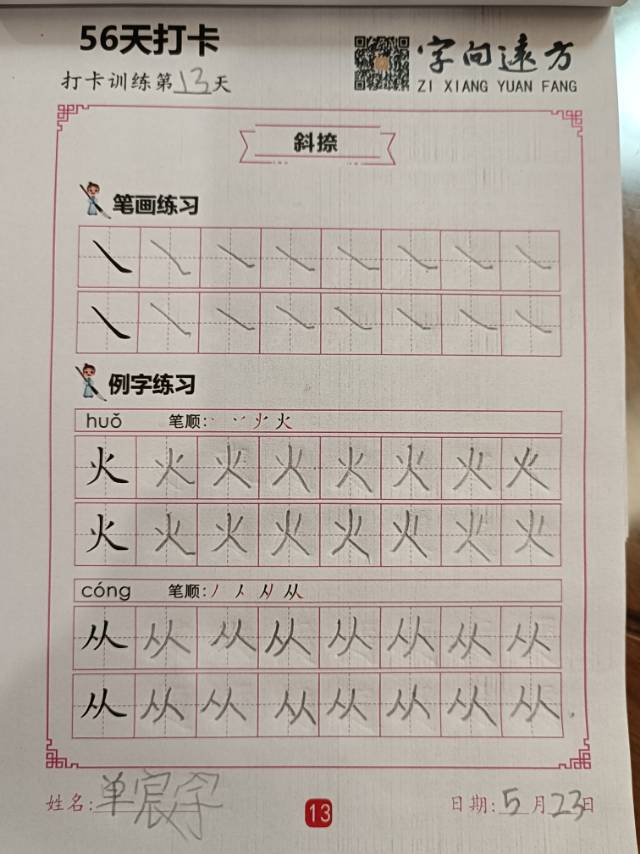 56天打卡
字向远方
打卡训练第13天
ZI XIANG YUAN FANG
斜捺
笔画练习
例字练习
huǒ 笔顺: 丶 丷 火 火
火 火 火 火 火 火 火 火
火 火 火 火 火 火 火 火
cóng 笔顺: 丿 人 从 从
从 从 从 从 从 从 从 从
从 从 从 从 从 从 从 从
姓名: 单宸
13
日期: 5月23日